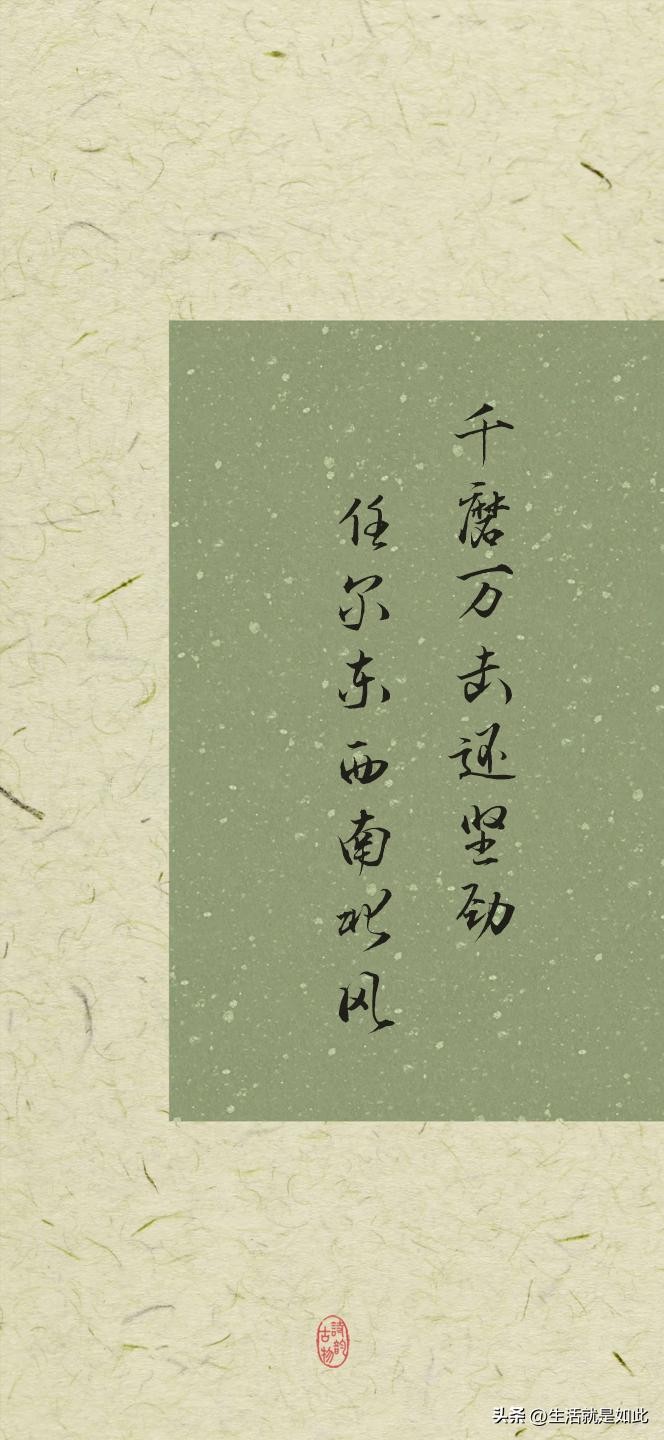 千磨万击还坚劲
任尔东西南北风
詩韵古物
头条 @生活就是如此